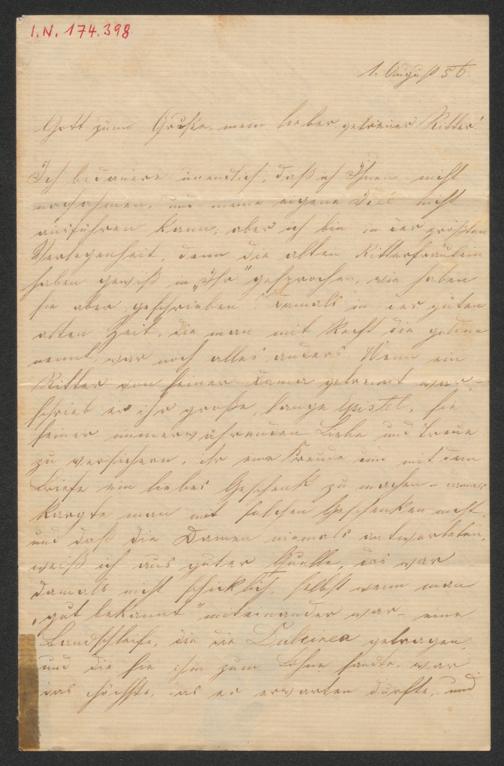 I.N. 174.398
1. August 56.
Gott zum Gruße, mein lieber getreuer Ritter!
Ich bedauere unendlich, daß ich Ihnen nicht
nachahmen, und meine eigene Idee nicht
ausführen kann, aber ich bin in der größten
Verlegenheit, denn die alten Ritterfräulein
haben gewiß in „Ihr" gesprochen, wie haben
sie aber geschrieben? Damals in der guten
alten Zeit, die man mit Recht die goldene
nennt, war noch alles anders. Wenn ein
Ritter von seiner Dame getrennt war,
schrieb er ihr große, lange Epistel, sie
seiner immerwährenden Liebe und Treue
zu versichern, ihr eine Freude und mit dem
Briefe ein liebes Geschenk zu machen –
kargte man mit solchen Geschenken nicht,
und daß die Damen niemals antworteten,
weiß ich aus guter Quelle, das war
damals nicht schicklich, selbst wenn man
„gut bekannt" miteinander war – eine
Bandschleife, die die Dulcinea getragen
und die sie ihm zum Lohne sandte, war
das höchste, was er erwarten durfte, und